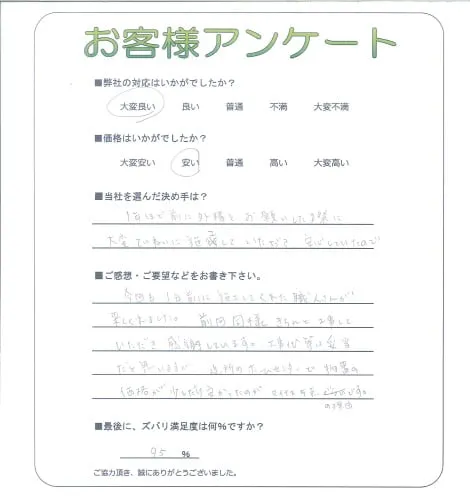 お客様アンケート
■弊社の対応はいかがでしたか？
大変良い 良い 普通 不満 大変不満
■価格はいかがでしたか？
大変安い 安い 普通 高い 大変高い
■当社を選んだ決め手は？
1年ほど前に外構をお願いした際に
大変ていねいに施工して いただき 安心していたので
■ご感想・ご要望などをお書き下さい。
今回も 1年前に施工してくれた職人さんが
来てくれました。 前回同様 きちんと工事して
いただき 感謝しています。 工事代等は妥当
だと思いますが 近所のホームセンターで 物置の
価格が 少しだけ安かったのが です。
■最後に、ズバリ満足度は何％ですか？
95 ％
ご協力頂き、誠にありがとうございました。